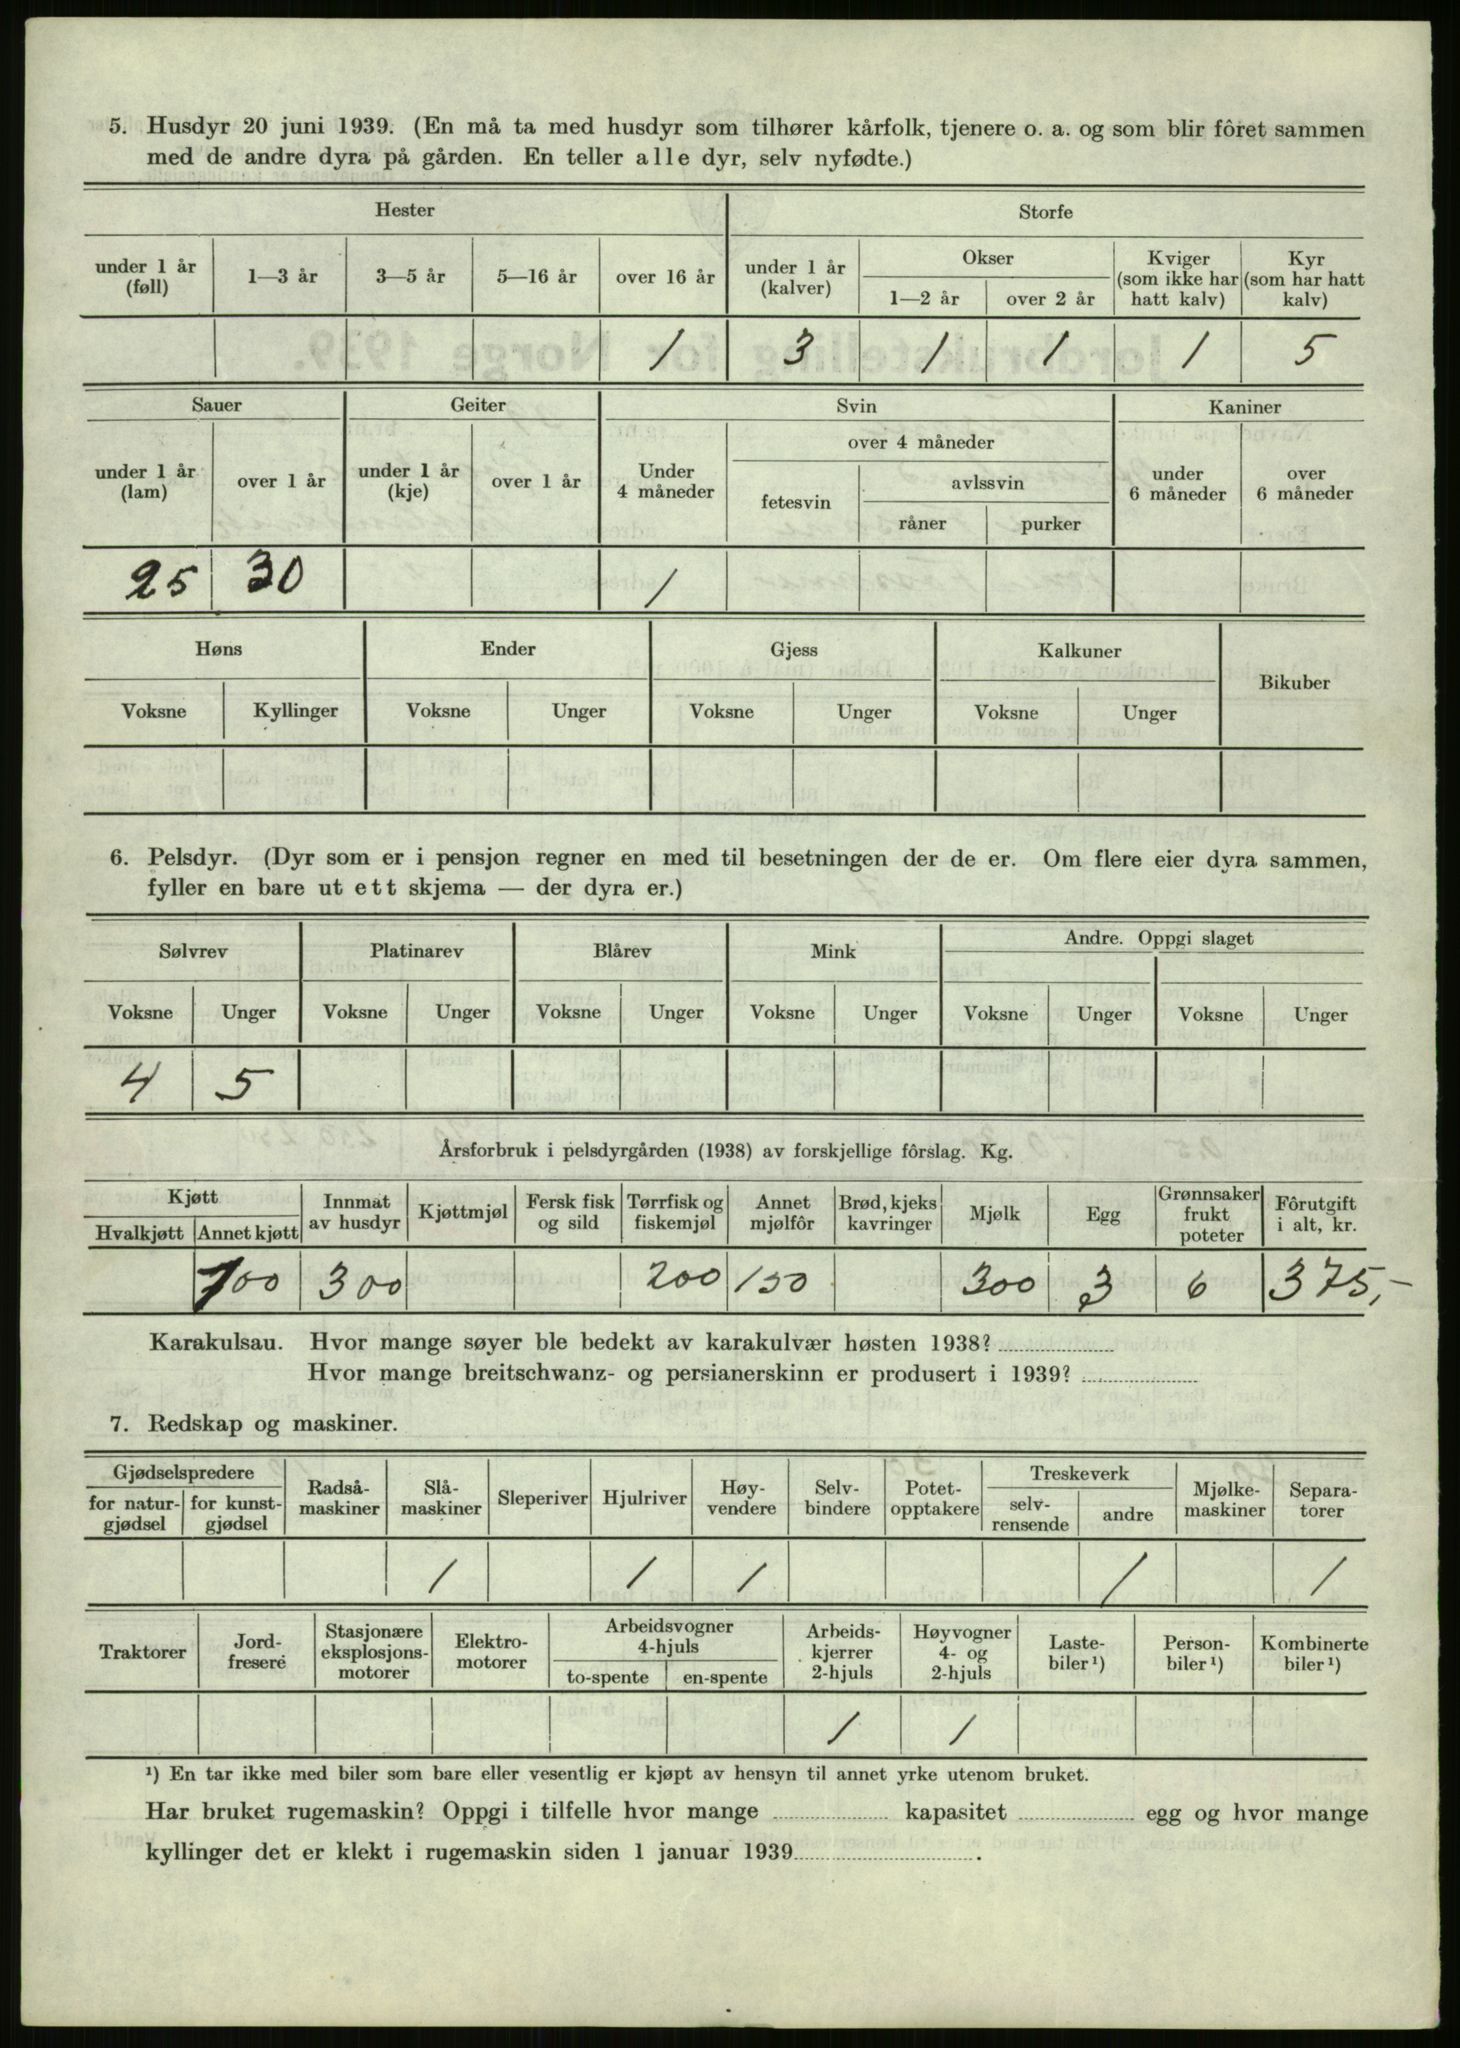 5. Husdyr 20 juni 1939. (En må ta med husdyr som tilhører kårfolk, tjenere o. a. og som blir fôret sammen
med de andre dyra på gården. En teller alle dyr, selv nyfødte.)
Hester Storfe
under 1 år (føll) 1—3 år 3—5 år 5—16 år over 16 år under 1 år (kalver) Okser 1—2 år over 2 år Kviger (som ikke har hatt kalv) Kyr (som har hatt kalv)
1 3 1 1 1 5
Sauer Geiter Svin Kaniner
under 1 år (lam) over 1 år under 1 år (kje) over 1 år Under 4 måneder over 4 måneder fetesvin avlssvin råner purker under 6 måneder over 6 måneder
25 30 1
Høns Ender Gjess Kalkuner Bikuber
Voksne Kyllinger Voksne Unger Voksne Unger Voksne Unger
6. Pelsdyr. (Dyr som er i pensjon regner en med til besetningen der de er. Om flere eier dyra sammen,
fyller en bare ut ett skjema — der dyra er.)
Sølvrev Platinarev Blårev Mink Andre. Oppgi slaget
Voksne Unger Voksne Unger Voksne Unger Voksne Unger Voksne Unger Voksne Unger
4 5
Årsforbruk i pelsdyrgården (1938) av forskjellige fôrslag. Kg.
Kjøtt Hvalkjøtt Annet kjøtt Innmat av husdyr Kjøttmjøl Fersk fisk og sild Tørrfisk og fiskemjøl Annet mjølfôr Brød, kjeks kavringer Mjølk Egg Grønnsaker frukt poteter Fôrutgift i alt, kr.
100 300 200 150 300 3 6 375,-
Karakulsau. Hvor mange søyer ble bedekt av karakulvær høsten 1938?
Hvor mange breitschwanz- og persianerskinn er produsert i 1939?
7. Redskap og maskiner.
Gjødselspredere for natur-gjødsel for kunst-gjødsel Radså-maskiner Slå-maskiner Sleperiver Hjulriver Høy-vendere Selv-bindere Potet-opptakere Treskeverk selv-rensende andre Mjølke-maskiner Separa-torer
1 1 1 1 1
Traktorer Jord-fresere Stasjonære eksplosjons-motorer Elektro-motorer Arbeidsvogner 4-hjuls to-spente en-spente Arbeids-kjerrer 2-hjuls Høyvogner 4- og 2-hjuls Laste-biler¹) Person-biler¹) Kombinerte biler¹)
1 1
¹) En tar ikke med biler som bare eller vesentlig er kjøpt av hensyn til annet yrke utenom bruket.
Har bruket rugemaskin? Oppgi i tilfelle hvor mange kapasitet egg og hvor mange
kyllinger det er klekt i rugemaskin siden 1 januar 1939 .